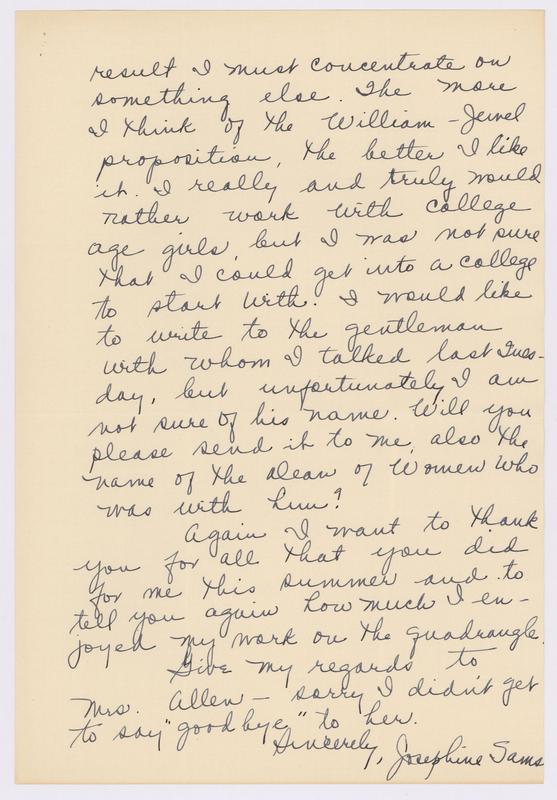 result I must concentrate on
something else. The more
I think of the William-Jewel
proposition, the better I like
it. I really and truly would
rather work with college
age girls, but I was not sure
that I could get into a college
to start with. I would like
to write to the gentleman
with whom I talked last Tues-
day, but unfortunately I am
not sure of his name. Will you
please send it to me, also the
name of the Dean of Women who
was with him?
Again I want to thank
you for all that you did
for me this summer and to
tell you again how much I en-
joyed my work on the quadrangle.
Give my regards to
Mrs. Allen - sorry I didn't get
to say "good bye" to her.
Sincerely, Josephine Sams